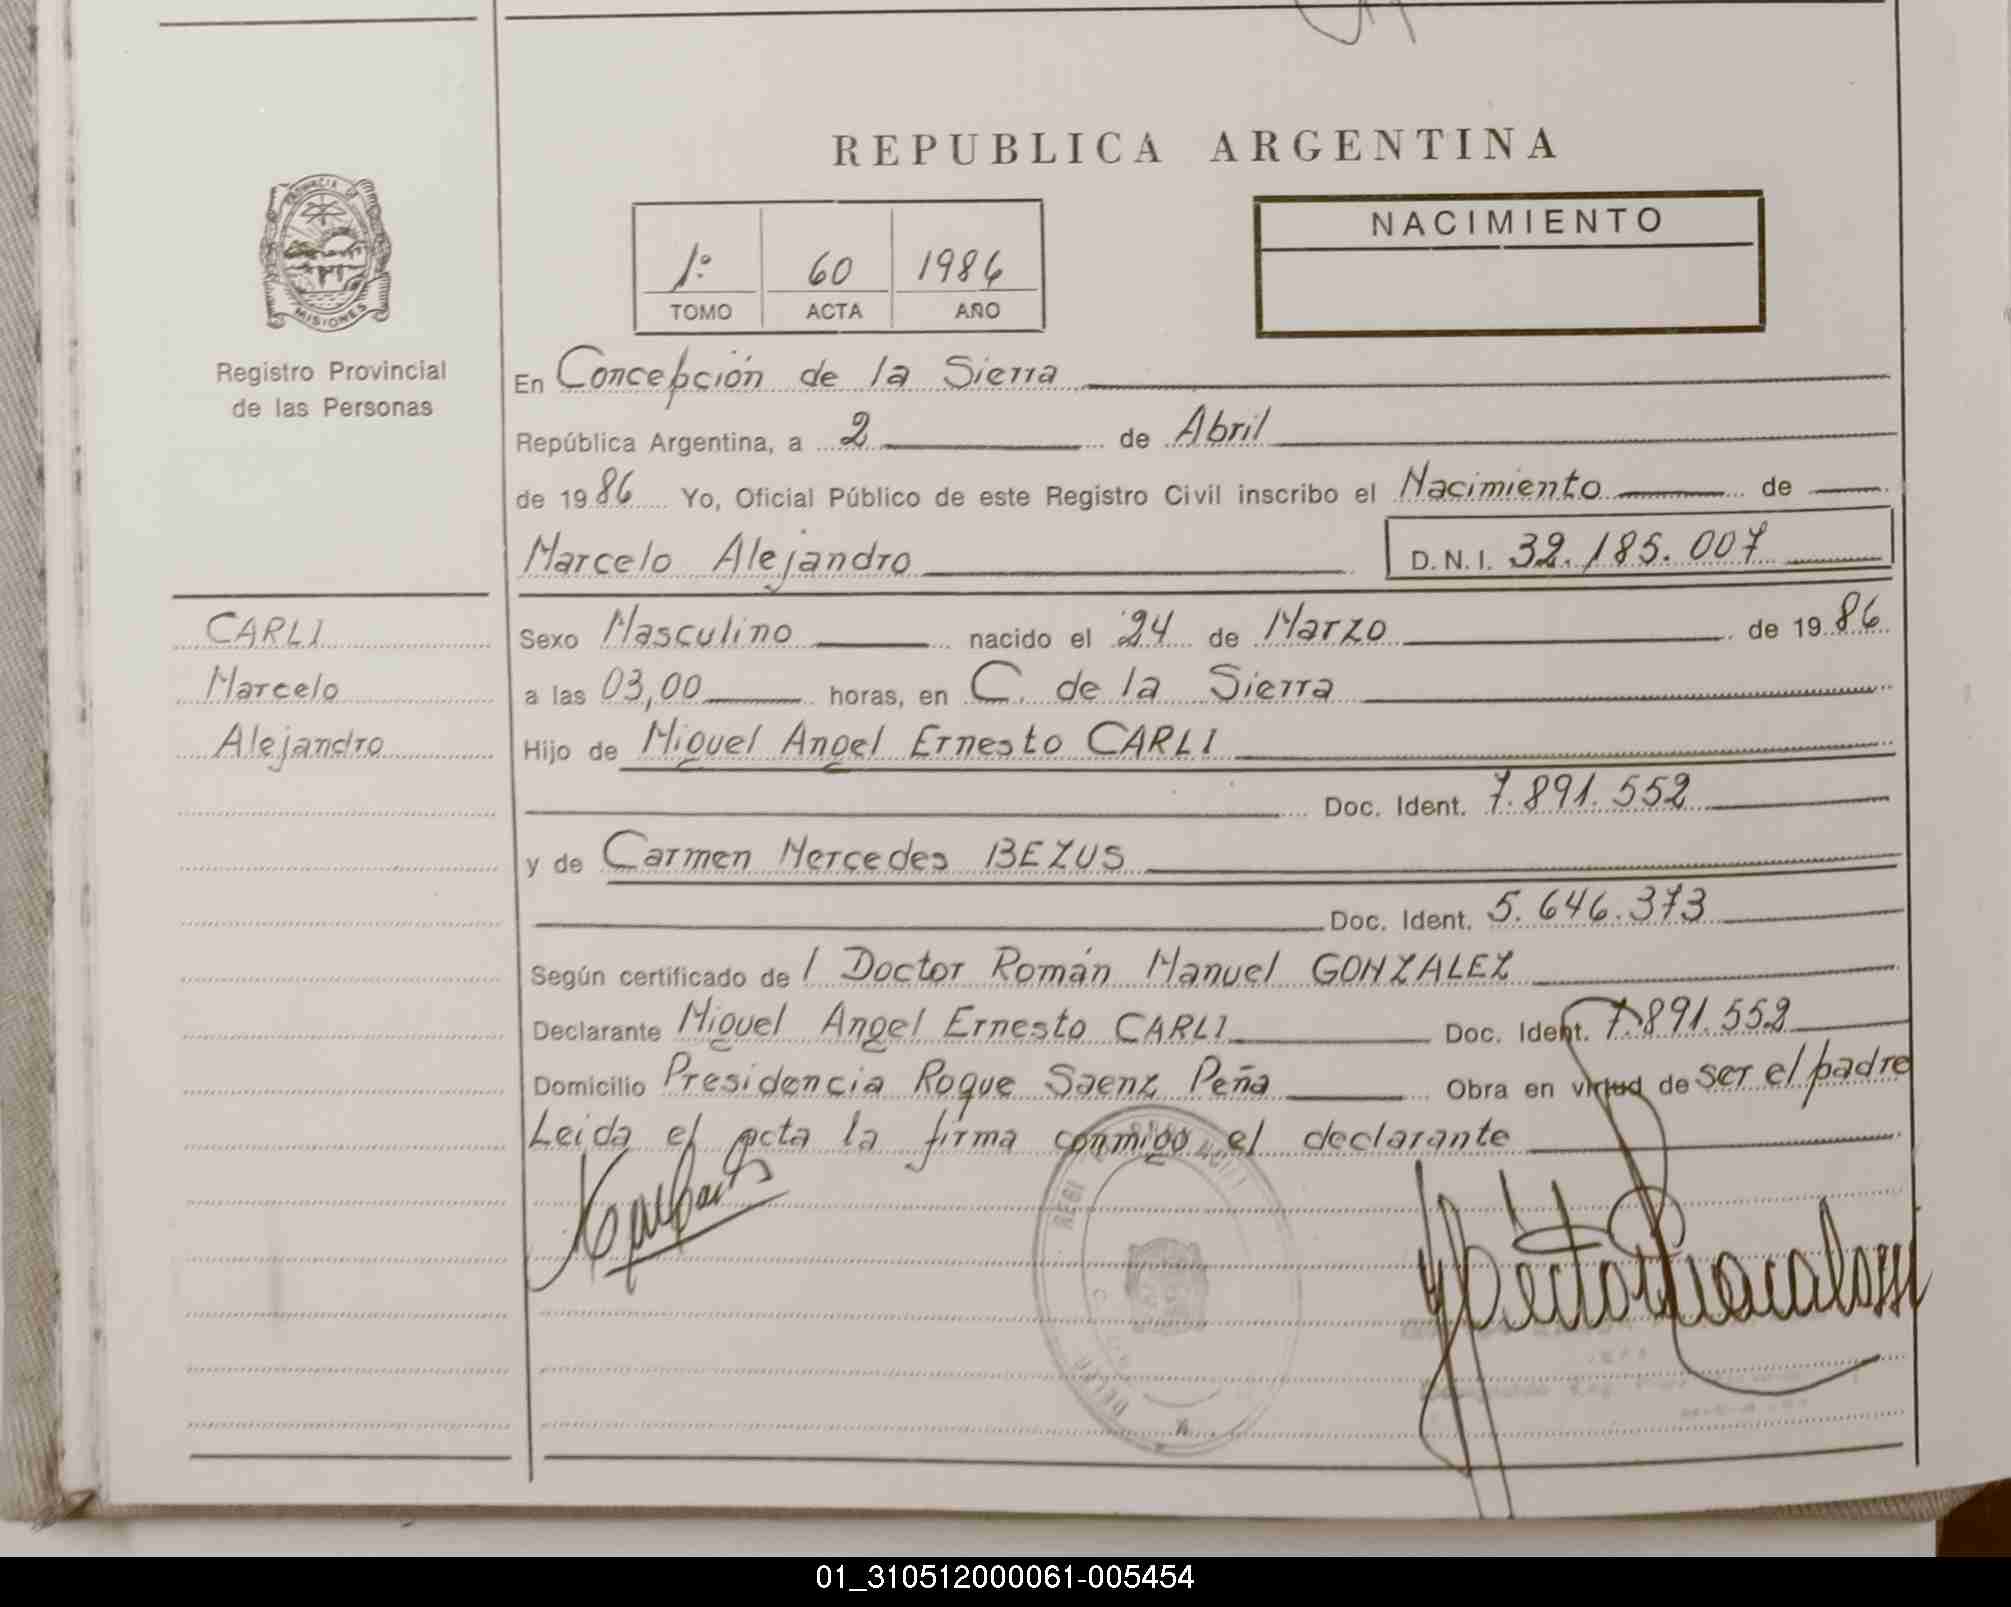 REPUBLICA ARGENTINA
PROVINCIA DE
MISIONES
Registro Provincial
de las Personas
1º 60 1986
TOMO ACTA AÑO
NACIMIENTO
En Concepción de la Sierra
República Argentina, a 2 de Abril
de 1986 Yo, Oficial Público de este Registro Civil inscribo el Nacimiento de
Marcelo Alejandro D.N.I. 32.185.007
CARLI
Marcelo
Alejandro
Sexo Masculino nacido el 24 de Marzo de 1986
a las 03,00 horas, en C. de la Sierra
Hijo de Miguel Angel Ernesto CARLI
Doc. Ident. 7.891.552
y de Carmen Mercedes BEZUS
Doc. Ident. 5.646.373
Según certificado de l Doctor Román Manuel GONZALEZ
Declarante Miguel Angel Ernesto CARLI Doc. Ident. 7.891.552
Domicilio Presidencia Roque Saenz Peña Obra en virtud de ser el padre
Leida el acta la firma conmigo el declarante
01_310512000061-005454